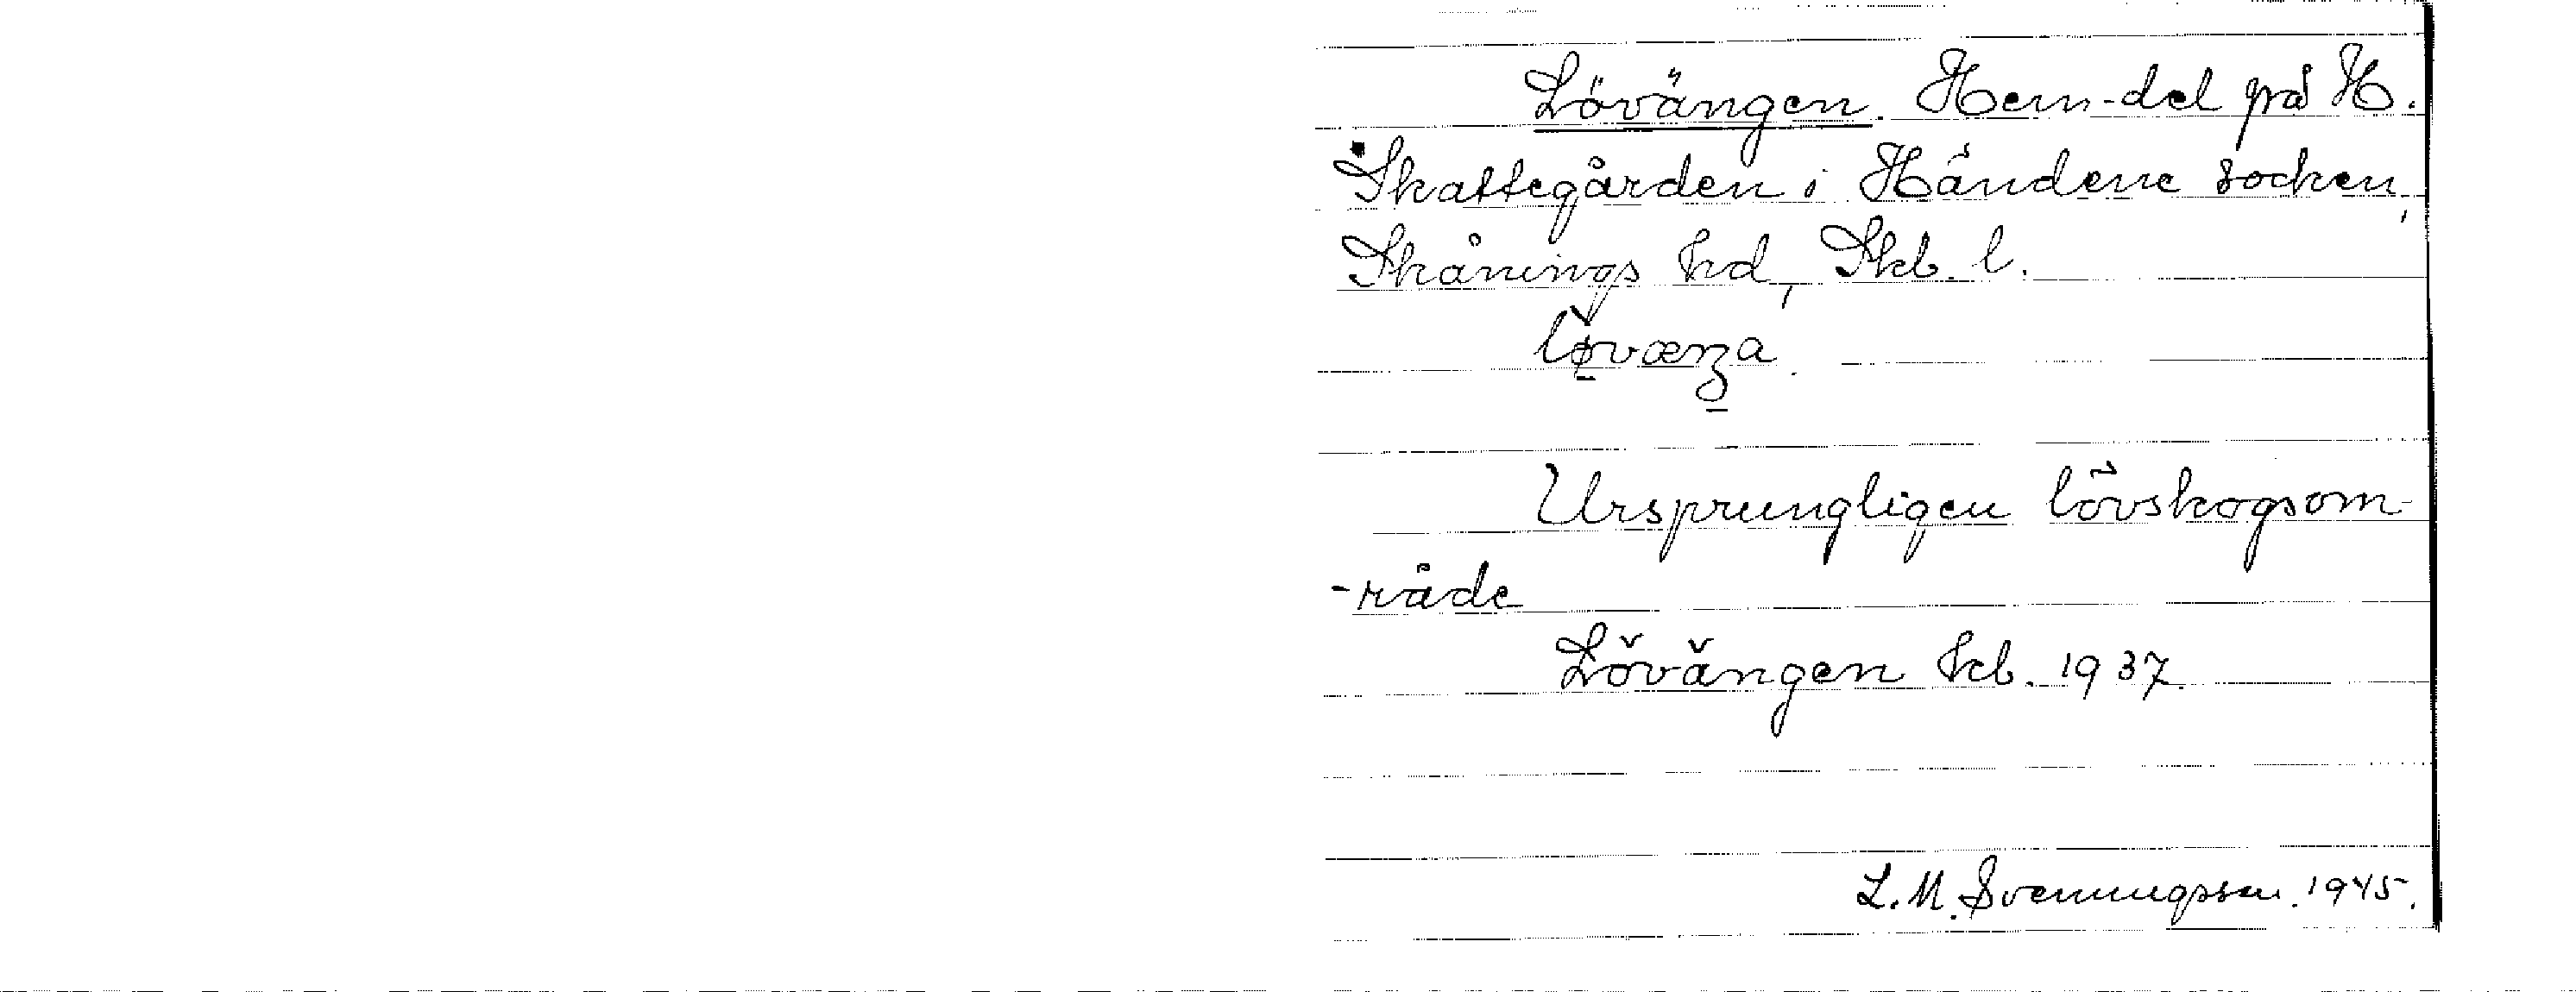 Lövängen. Hem-del på H.
Skattegården i Händene socken,
Skånings hd, Skb. l.
Ursprungligen lövskogsom-
-råde
Lövängen kb. 1937.
L. M. Svenungsson. 1945.